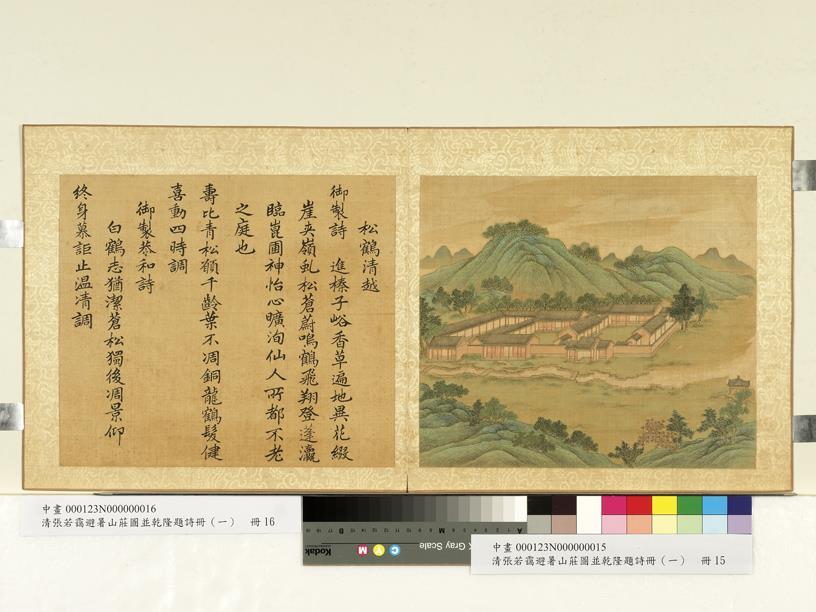 松鶴清越
御製詩　進榛子峪香草遍地異花綴
崖夾嶺虬松蒼蔚鳴鶴飛翔登蓬瀛
臨崑圃神怡心曠洵仙人所都不老
之庭也
壽比青松願千齡葉不凋銅龍鶴髮健
喜動四時調
御製恭和詩
白鶴志猶潔蒼松獨後凋景仰
終身慕詎止温凊調
中畫 000123N000000016
清張若靄避暑山莊圖並乾隆題詩冊（一）　冊 16
Kodak
Gray Scale
C Y M
A
M
B
中畫 000123N000000015
清張若靄避暑山莊圖並乾隆題詩冊（一）　冊 15